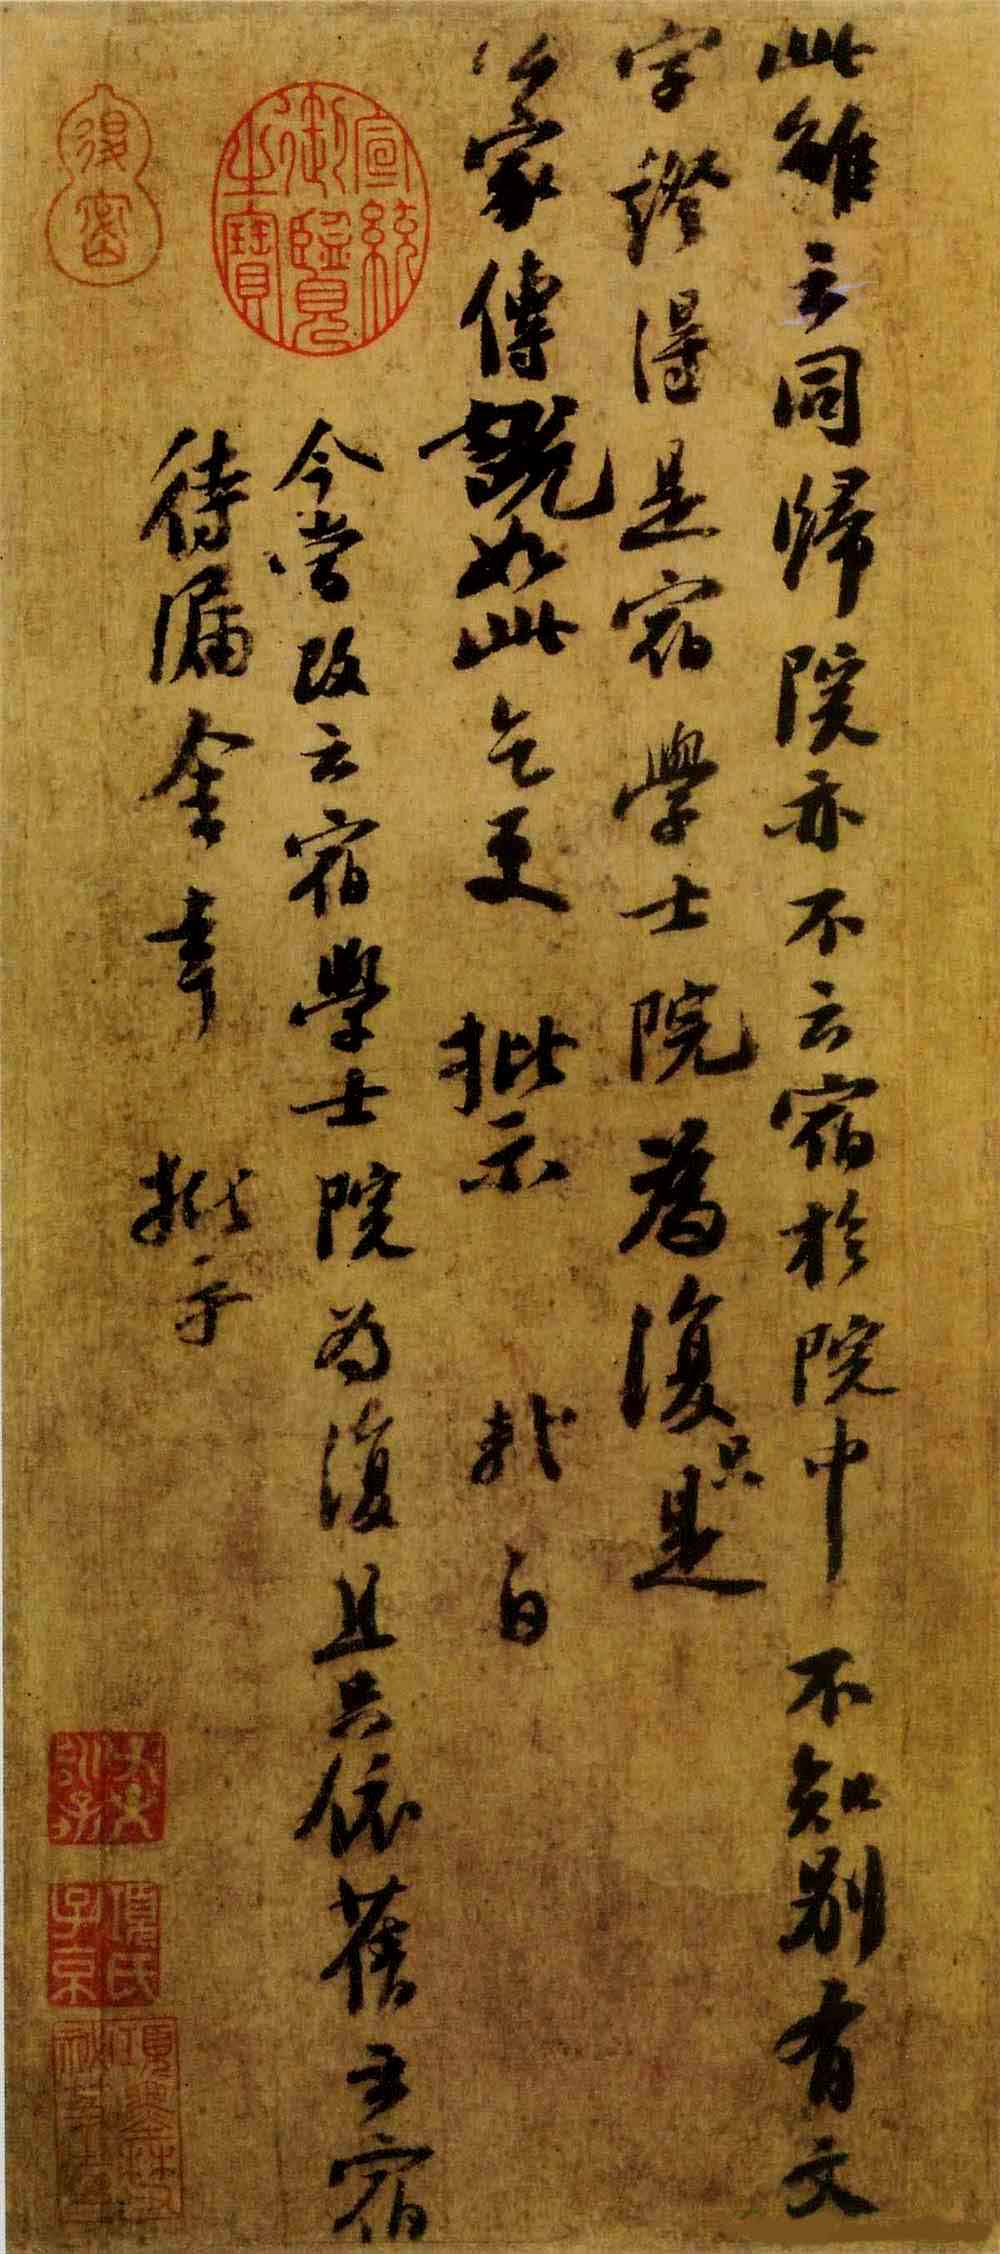 此雖云同歸院亦不云宿於院中 不知別有文
字證得是宿學士院為復只是
公家傳說如此乞更 批示 軾白
今嘗改云宿學士院為復且只依舊云宿
待漏舍幸 批示
宣統
御覽
之寶
項氏
子京